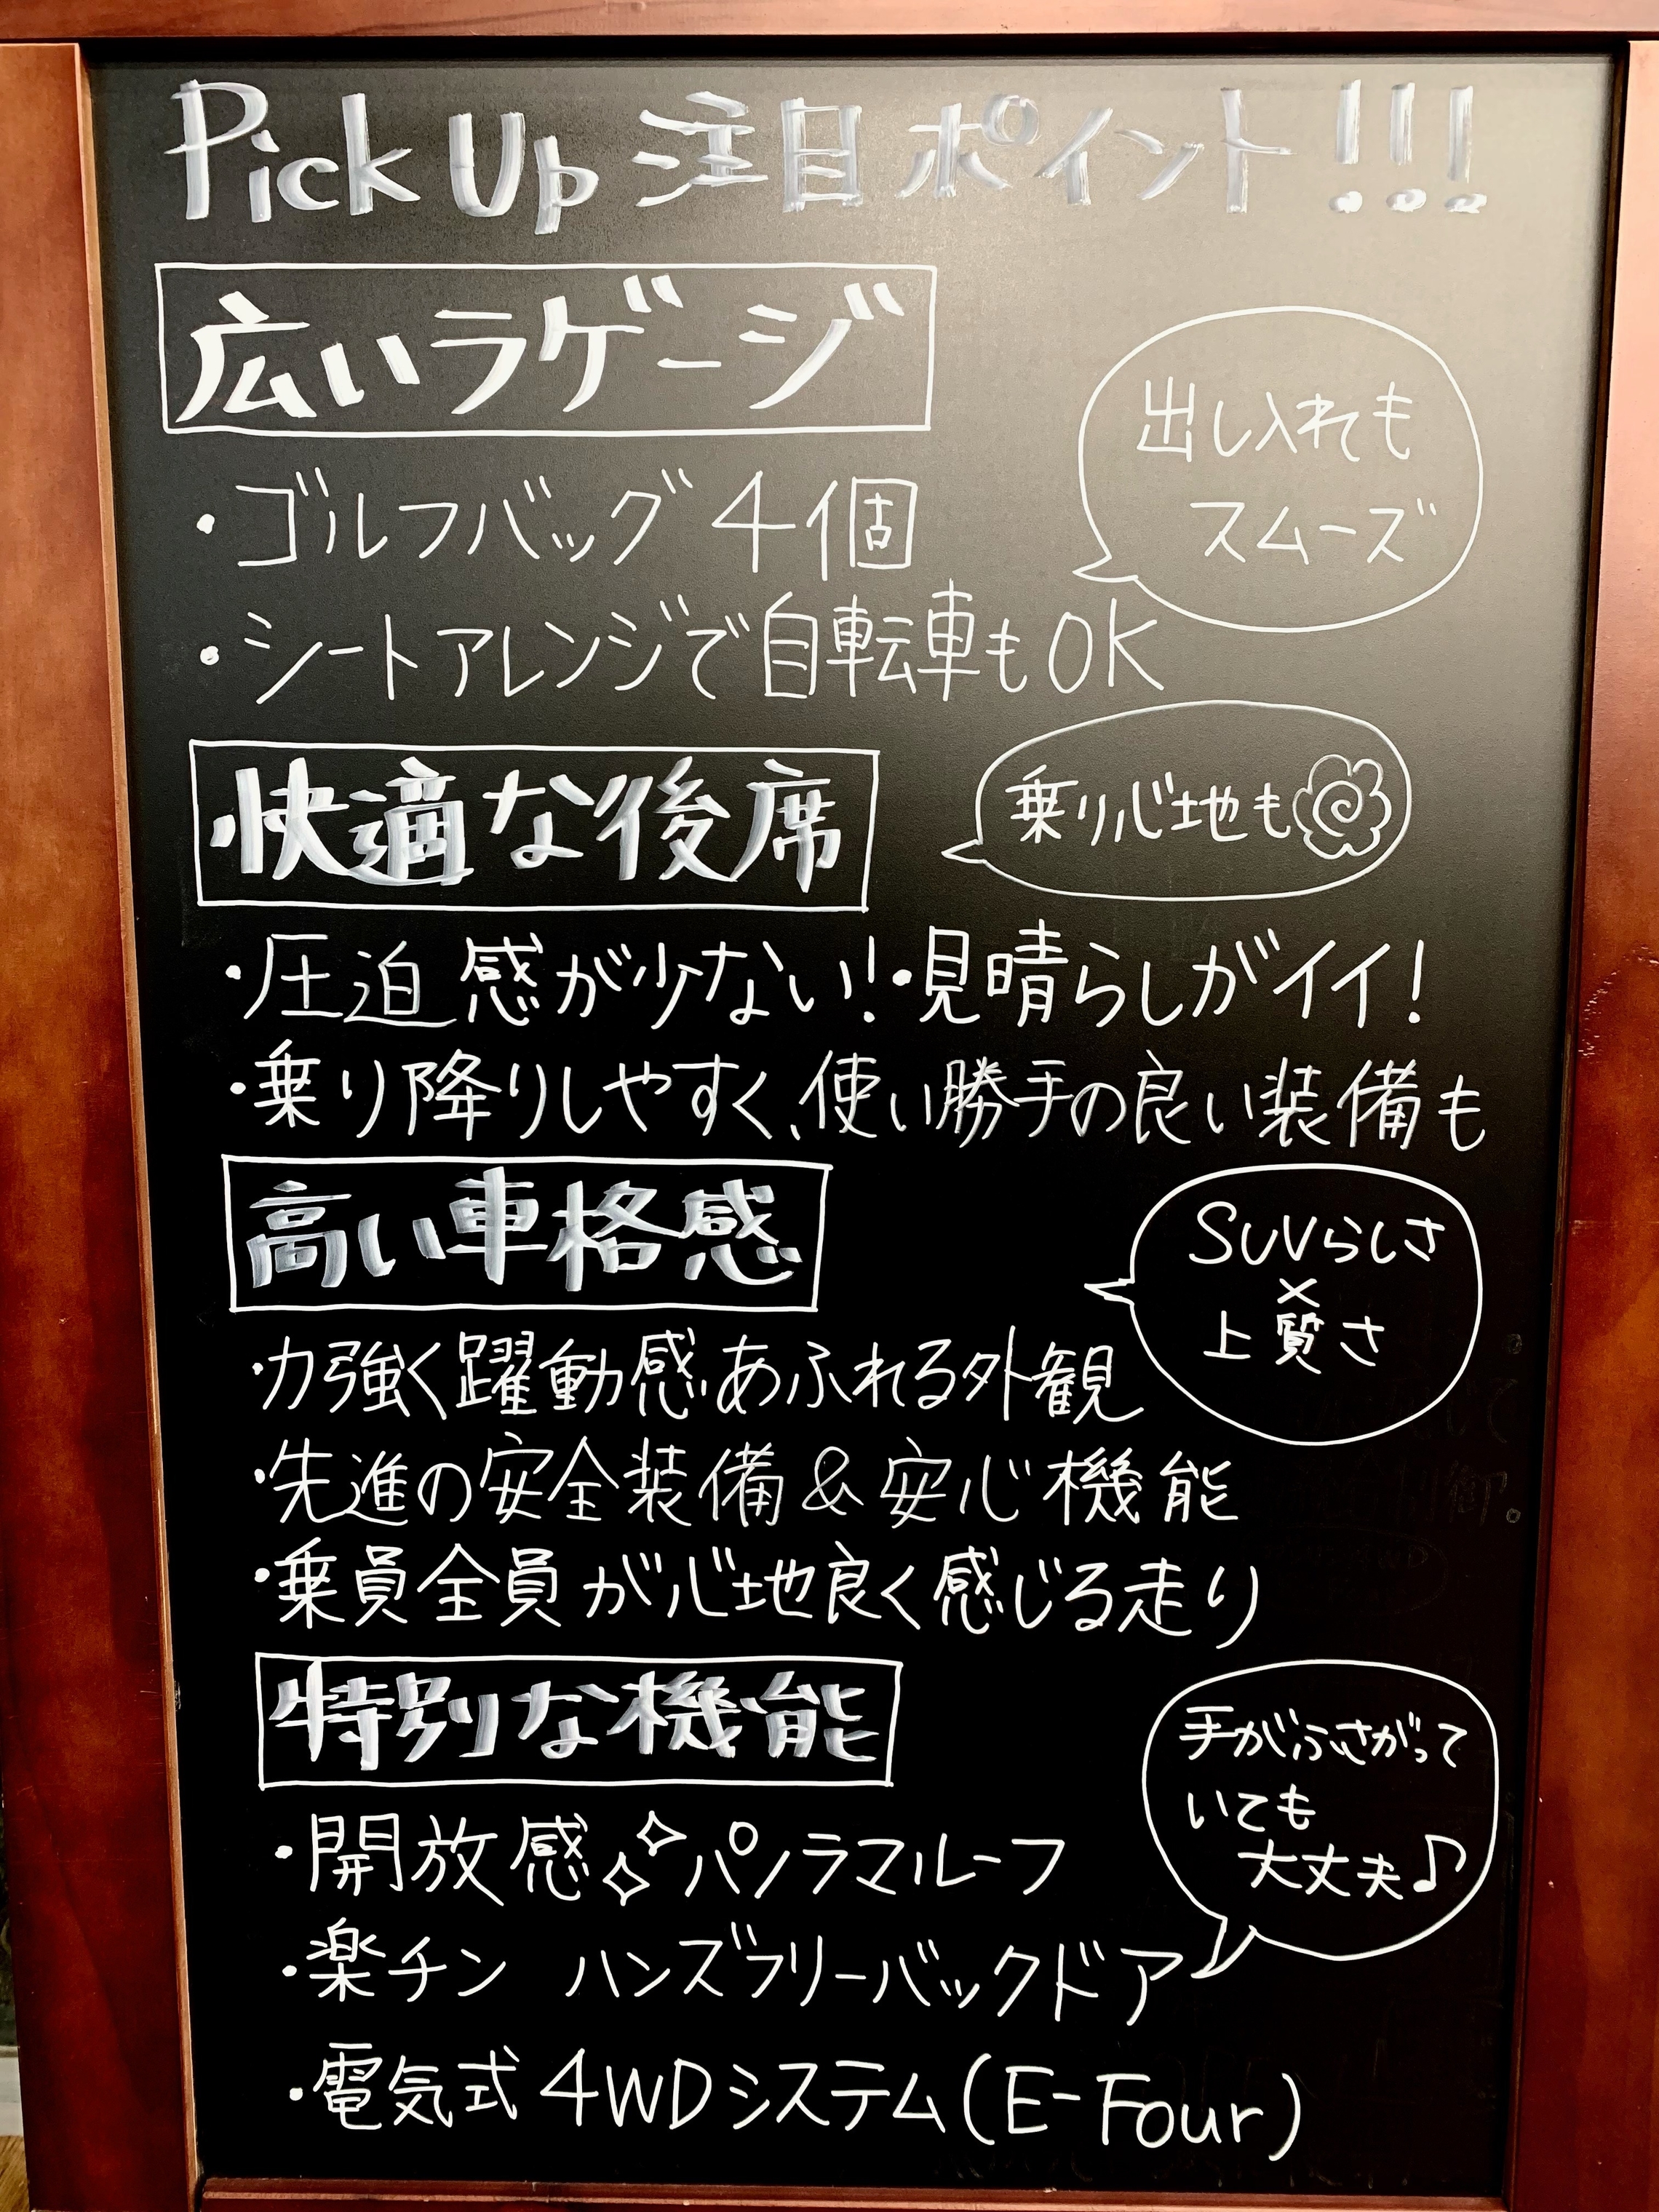 Pick Up 注目ポイント!!!
広いラゲージ
・ゴルフバッグ 4個
・シートアレンジで自転車もOK
出し入れも
スムーズ
快適な後席
乗り心地も
・圧迫感が少ない!・見晴らしがイイ!
・乗り降りしやすく、使い勝手の良い装備も
高い車格感
SUVらしさ
×
上質さ
・力強く躍動感あふれる外観
・先進の安全装備&安心機能
・乗員全員が心地良く感じる走り
特別な機能
・開放感 パノラマルーフ
・楽チン ハンズフリーバックドア
手がふさがって
いても
大丈夫♪
・電気式4WDシステム(E-Four)